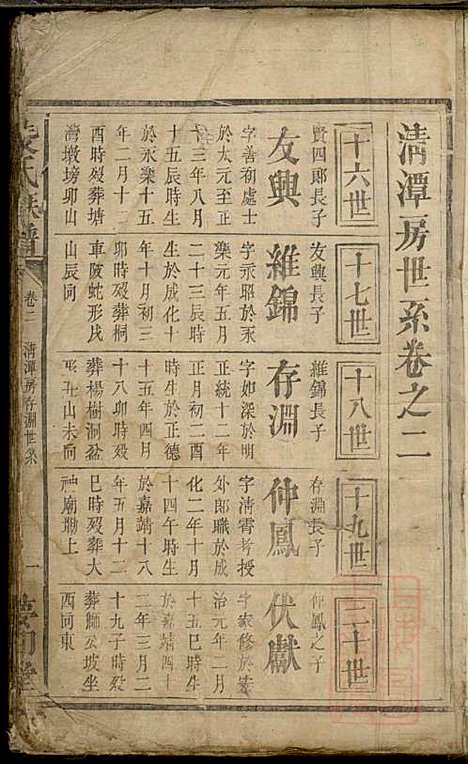 清潭房世系卷之二
十六世
賢四郎長子
友興
字善初處士
於大元至正
十三年八月
十五辰時生
於永樂十五
年二月十二
酉時殁葬塘
灣墩塝卯山
十七世
友興長子
維錦
字永昭於永
樂元年五月
二十三辰時
生於成化十
年十月初三
卯時殁葬桐
車陂蛇形戌
山辰向
十八世
維錦長子
存淵
字如深於明
正統十二年
正月初二酉
時生於正德
十五年四月
十八卯時殁
葬楊樹洞盆
形丑山未向
十九世
存淵長子
仲鳳
字清霄授
外郎職於成
化二年十月
十四午時生
於嘉靖十八
年五月十二
巳時殁葬大
神廟墈上
二十世
仲鳳之子
伏獻
字家修於宏
治元年二月
十五巳時生
於嘉靖四十
二年三月二
十九子時殁
葬獅公坡坐
西向東
氏族譜
卷二
清潭房存淵世系
一